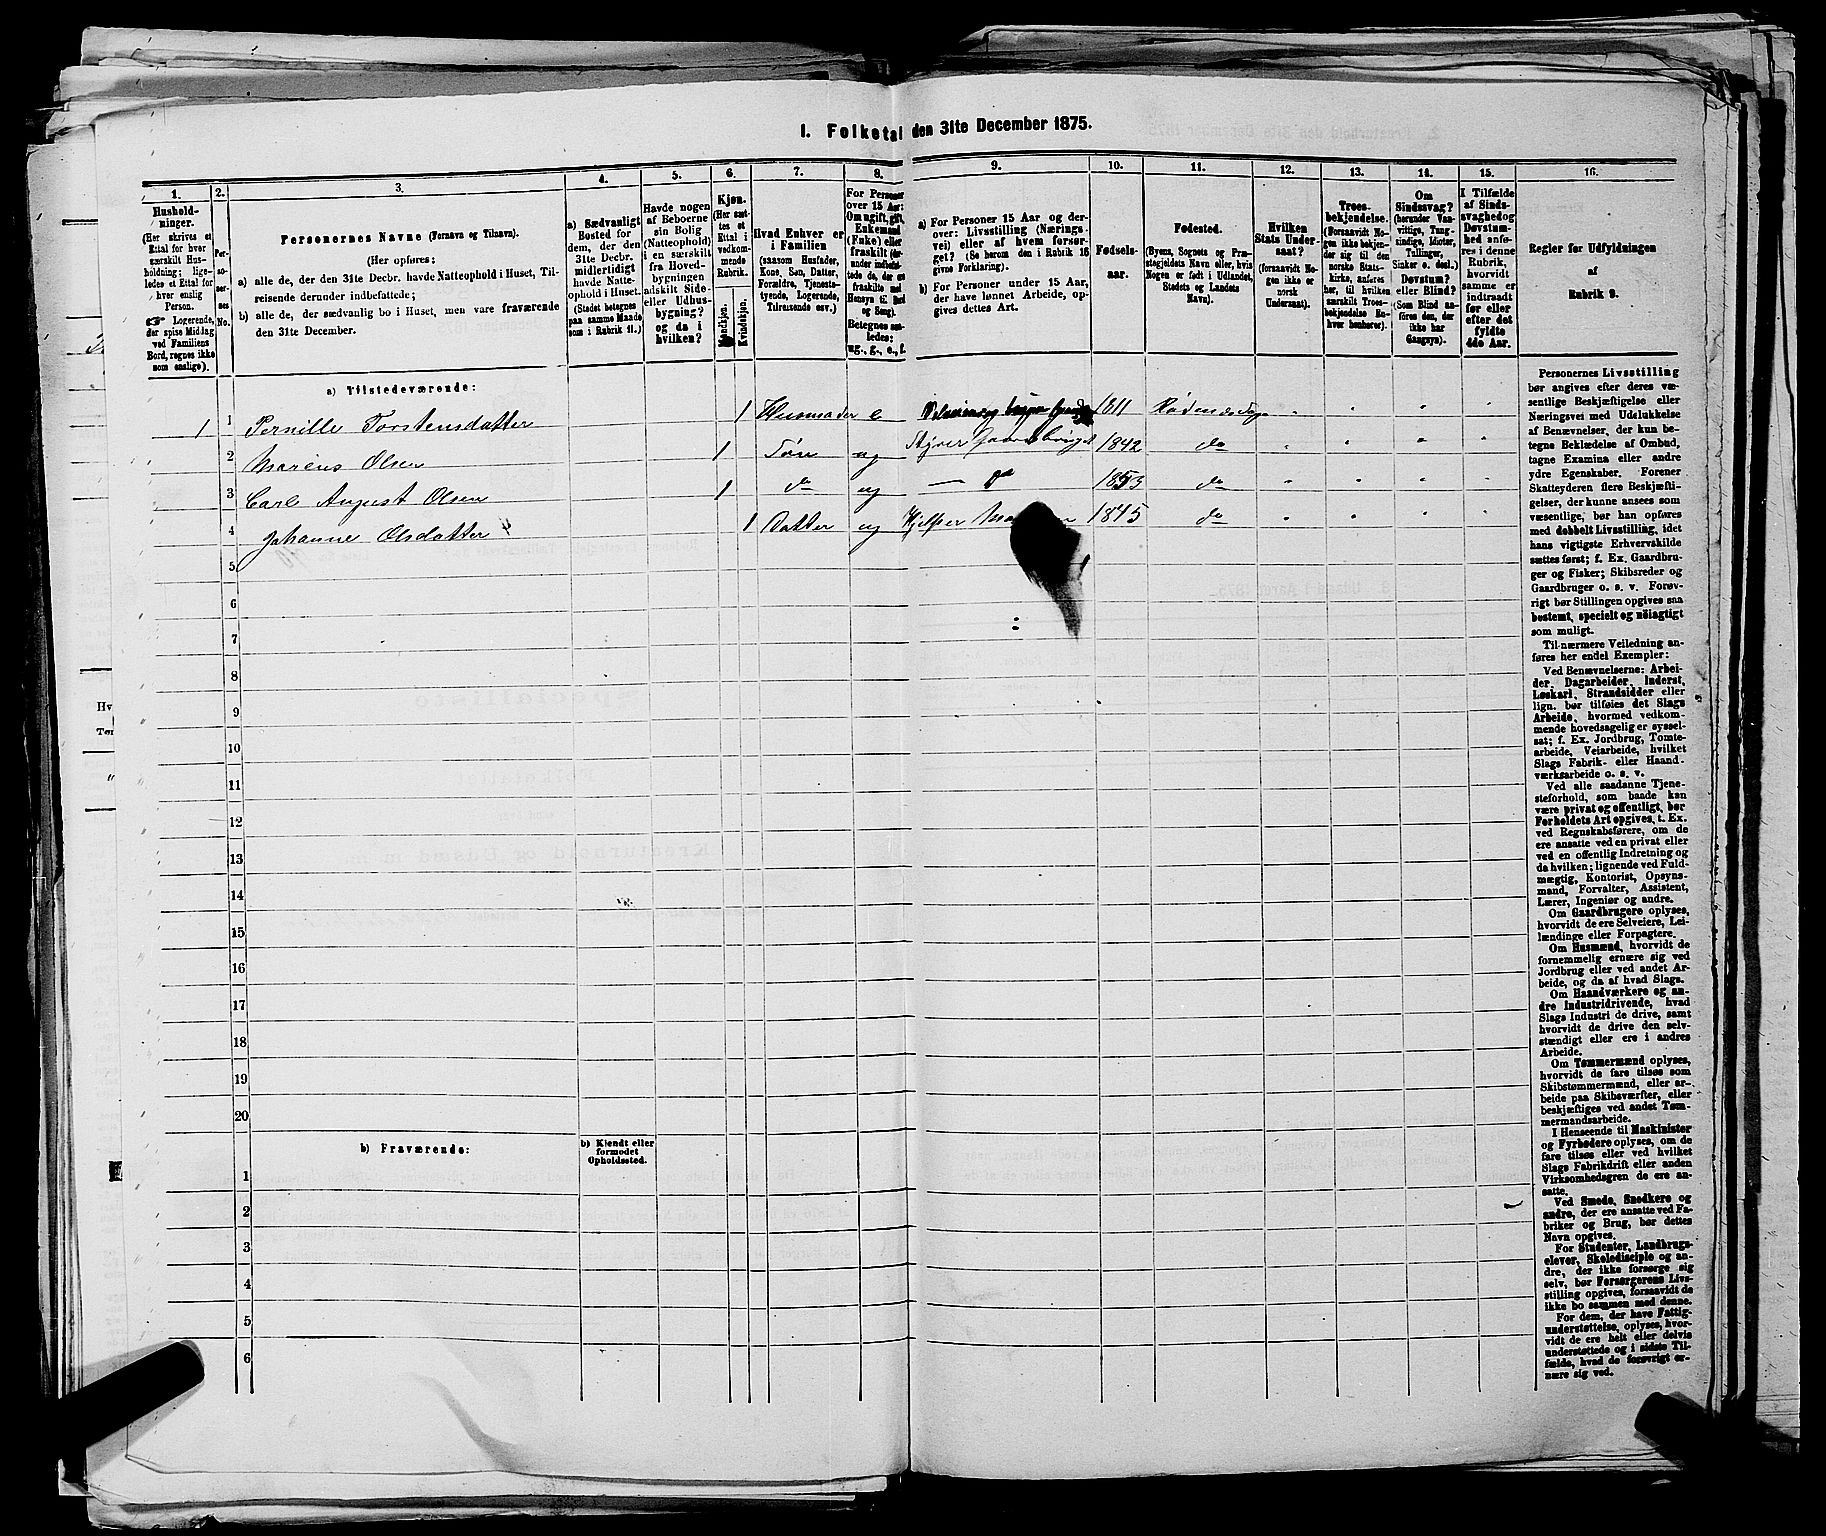 1. Folketal den 31te December 1875.
1. 2. 3. 4. 5. 6. 7. 8. 9. 10. 11. 12. 13. 14. 15. 16.
Hushold-
ninger.
(Her skrives et
Ettal for hver
særskilt Hus-
holdning; lige-
ledes et Ettal for
hver enslig
Person.
Logerende,
der spise Middag
ved Familiens
Bord, regnes ikke
som enslige).
Per-
so-
ner-
nes
No.
Personernes Navne (Fornavn og Tilnavn).
(Her opføres:
a) alle de, der den 31te Decbr. havde Natteophold i Huset, Til-
reisende derunder indbefattede;
b) alle de, der sædvanlig bo i Huset, men vare fraværende
den 31te December.
a) Sædvanligt
Bosted for
dem, der den
31te Decbr.
midlertidigt
havde Natte-
ophold i Huset.
(Stedet betegnes
paa samme Maade
som i Rubrik 11.)
Havde nogen
af Beboerne
sin Bolig
(Natteophold)
i en særskilt
fra Hoved-
bygningen
adskilt Side-
eller Udhus-
bygning?
og da i
hvilken?
Kjøn.
(Her sæt-
tes et
Ettal i
vedkom-
mende
Rubrik.
Mandkjøn.
Kvindkjøn.
Hvad Enhver er
i Familien
(saasom Husfader,
Kone, Søn, Datter,
Forældre, Tjeneste-
tyende, Logerende,
Tilreisende osv.)
For Personer
over 15 Aar:
Om ugift, gift,
Enkemand
(Enke) eller
fraskilt (der-
under indbefat-
tede de, der ere
fraskilte med
Hensyn til Bord
og Seng).
Betegnes saa-
ledes:
ug., g., e., f.
a) For Personer 15 Aar og der-
over: Livsstilling (Nærings-
vei) eller af hvem forsør-
get? (Se herom den i Rubrik 16
givne Forklaring).
b) For Personer under 15 Aar,
der have lønnet Arbeide, op-
gives dettes Art.
Fødsels-
aar.
Fødested.
(Byens, Sognets og Præ-
stegjeldets Navn eller, hvis
Nogen er født i Udlandet,
Stedets og Landets
Navn).
Hvilken
Stats Under-
saat?
(foraavidt No-
gen ikke er
norsk
Undersaat).
Troes-
bekjendelse.
(Forsaavidt No-
gen ikke bekjen-
der sig til den
norske Stats-
kirke, anføres
her, til hvilken
særskilt Troes-
bekjendelse En-
hver henhører).
Om
Sindssvag?
(herunder Van-
vittige, Tung-
sindige, Idioter,
Tullinger,
Sinker o. desl.)
Døvstum?
eller Blind?
(Som Blind an-
føres den, der
ikke har
Gangsyn).
I Tilfælde
af Sinds-
svaghed og
Døvstum-
hed anfø-
res i denne
Rubrik,
hvorvidt
samme er
indtraadt
før eller
efter det
fyldte
4de Aar.
Regler for Udfyldningen
af
Rubrik 9.
a) Tilstedeværende:
1 1 Pernille Torstensdatter 1 Husmoder e 1811 Rødenæs
2 Marius Olsen 1 Søn ug Styrer 1842 do
3 Carl August Olsen 1 do ug — 1853 do
4 Johanne Olsdatter 1 Datter ug Hjelper 1845 do
5
6
7
8
9
10
11
12
13
14
15
16
17
18
19
20
b) Fraværende:
b) Kjendt eller
formodet
Opholdssted.
1
2
3
4
5
6
Personernes Livsstilling
bør angives efter deres væ-
sentlige Beskjæftigelse eller
Næringsvei med Udelukkelse
af Benævnelser, der kun be-
tegne Beklædelse af Ombud,
tagne Examina eller andre
ydre Egenskaber. Forener
Skatteyderen flere Beskjæfti-
gelser, der kunne ansees som
væsentlige, bør han opføres
med dobbelt Livsstilling, idet
hans vigtigste Erhvervskilde
sættes først; f. Ex. Gaardbru-
ger og Fisker; Skibsreder og
Gaardbruger o. s. v. Forøv-
rigt bør Stillingen opgives saa
bestemt, specielt og nøiagtigt
som muligt.
Til nærmere Veiledning an-
føres her endel Exempler:
Ved Benævnelserne: Arbei-
der, Dagarbeider, Inderst,
Løskarl, Strandsidder eller
lign. bør tilføies det Slags
Arbeide, hvormed vedkom-
mende hovedsagelig er syssel-
sat; f. Ex. Jordbrug, Tomte-
arbeide, Veiarbeide, hvilket
Slags Fabrik- eller Haand-
værksarbeide o. s. v.
Ved alle saadanne Tjene-
steforhold, som baade kan
være privat og offentligt, bør
Forholdets Art opgives, t. Ex.
ved Regnskabsførere, om de
ere ansatte ved en privat eller
ved en offentlig Indretning og
da hvilken; lignende ved Fuld-
mægtig, Kontorist, Opsyns-
mand, Forvalter, Assistent,
Lærer, Ingeniør og andre.
Om Gaardbrugere oplyses,
hvorvidt de ere Selveiere, Lei-
lændinge eller Forpagtere.
Om Husmænd, hvorvidt de
fornemmelig ernære sig ved
Jordbrug eller ved andet Ar-
beide, og da af hvad Slags.
Om Haandværkere og an-
dre Industridrivende, hvad
Slags Industri de drive, samt
hvorvidt de drive den selv-
stændigt eller ere i andres
Arbeide.
Om Tømmermænd oplyses,
hvorvidt de fare tilsøs som
Skibstømmermænd, eller ar-
beide paa Skibsværfter, eller
beskjæftiges ved andet Tøm-
mermandsarbeide.
I Henseende til Maskinister
og Fyrbødere oplyses, om de
fare tilsøs eller ved hvilket
Slags Fabrikdrift eller anden
Virksomhedsgren de ere an-
satte.
Ved Smede, Snedkere og
andre, der ere ansatte ved Fa-
briker og Brug, bør dettes
Navn opgives.
For Studenter, Landbrugs-
elever, Skoledisciple og an-
dre, der ikke forsørge sig
selv, bør Forsørgerens Livs-
stilling opgives, forsaavidt de
ikke bo sammen med denne.
For dem, der have Fattig-
understøttelse, oplyses, hvor-
vidt de ere helt eller delvis
understøttede og i sidste Til-
fælde, hvad de forøvrigt er-
nære sig ved.